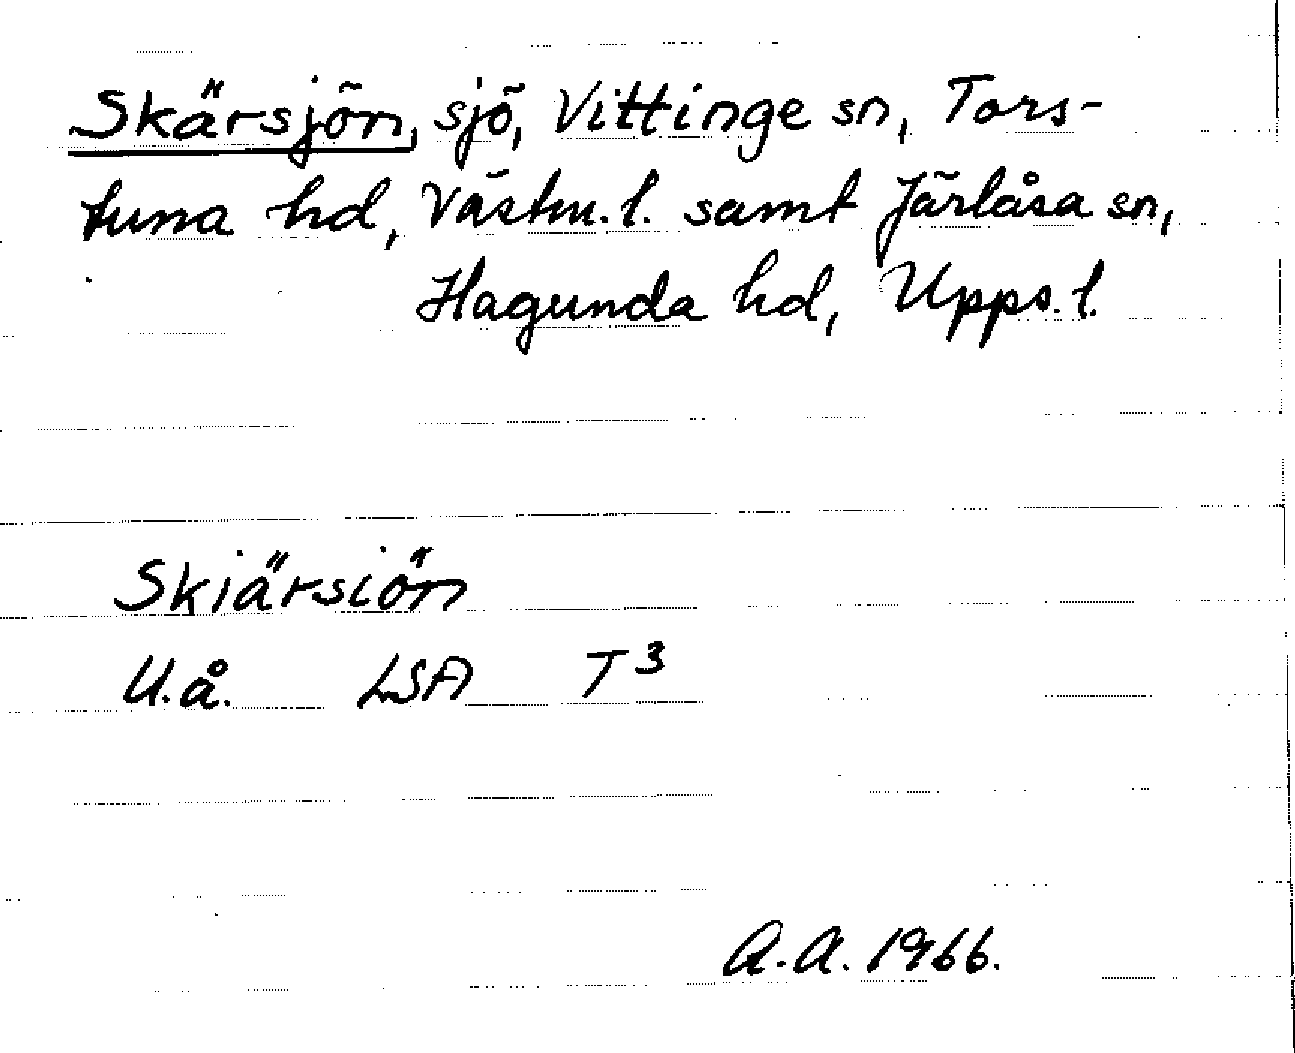 Skärsjön, sjö, Vittinge sn, Tors-
tuna hd, Västm. l. samt Järlåsa sn,
Hagunda hd, Upps. l.
Skiärsiön
U.å. LSA T3
A.A. 1966.